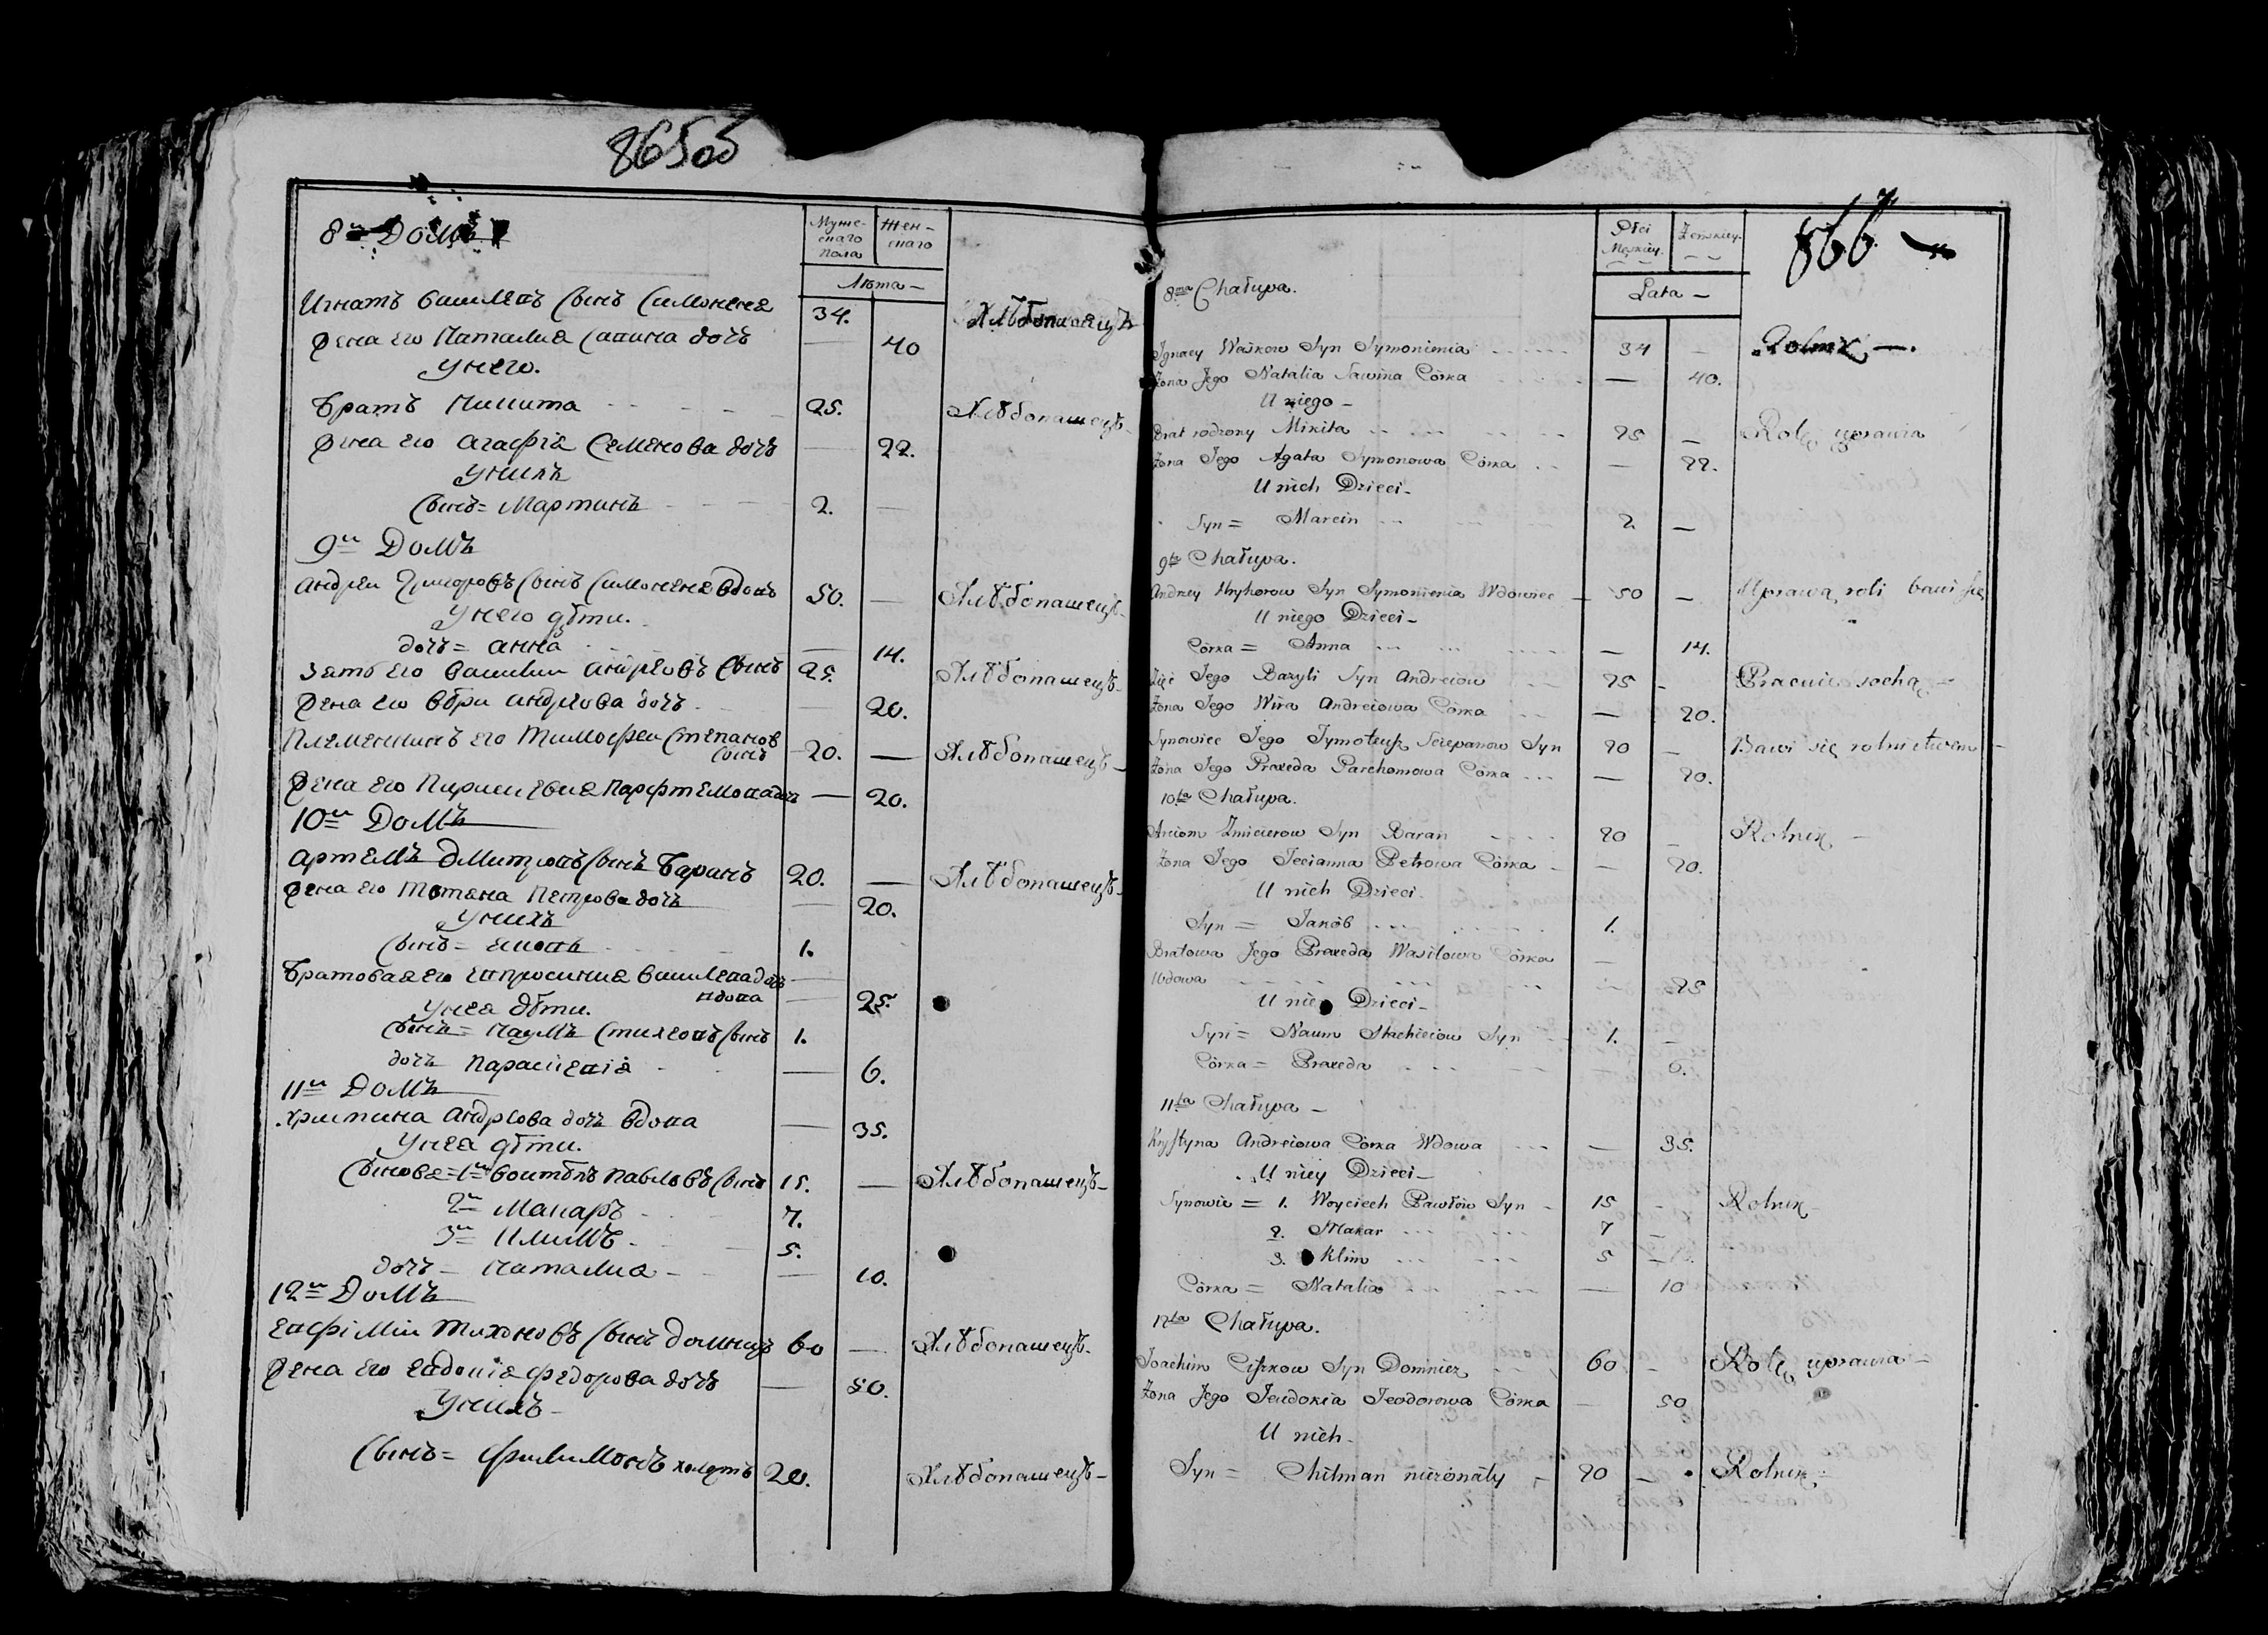 865об
8й Домъ
Муже-
скаго
пола
Жен-
скаго
Лѣта —
Игнатъ Василевъ Сынъ Симоненя 34.
Хлѣбопашецъ
Жена его Наталия Савина дочь — 40
У него.
Братъ Никита 25. Хлѣбопашецъ
Жена его Агафiя Семенова дочь — 22.
У нихъ
Сынъ = Мартинъ 2. —
9й Домъ
Андреи Григоровъ Сынъ Симоненя вдовъ 50. — Хлѣбопашецъ
У него дѣти.
дочь = Анна — 14.
Зять его Василии Андреовъ Сынъ 25. Хлѣбопашецъ
Жена его Вѣра Андреова дочь — 20.
Племенникъ его Тимофеи Степанов
Сынъ 20. — Хлѣбопашецъ
Жена его Парфтемова дочь — 20.
10й Домъ
Артемъ Дмитровъ Сынъ Баранъ 20. — Хлѣбопашецъ
Жена его Тотяна Петрова дочь — 20.
У нихъ
Сынъ = 1.
Братовая его Василева дочь —
вдова — 25.
У нея дѣти.
Сынъ = Наумъ Сынъ 1.
дочь — 6.
11й Домъ
Христина Андреова дочь вдова — 35.
У нея дѣти.
Сыновя = 1й Воитѣхъ Павловъ Сынъ 15. — Хлѣбопашецъ
2й Макаръ 7.
3й Климъ 5.
дочь — Наталиа — 10.
12й Домъ
Евфiмiи Тихоновъ Сынъ Домницъ 60 — Хлѣбопашецъ
Жена его Евдокiя Федорова дочь — 50.
У нихъ —
Сынъ = Филимонъ холостъ 20. Хлѣбопашецъ
866
Płci
Męzkiey.
Żenskiey.
Lata —
8ma Chałupa.
Ignacy Waśkow Syn Symonienia 34 — Rolnik —.
Żona Jego Natalia Sawina Córka — 40.
U niego —
Brat rodzony Mikita 25 — Rolę uprawia
Żona Jego Agata Symonowa Córka — 22.
U nich Dzieci —
Syn = Marcin 2 —
9ta Chałupa.
Andrzey Hryhorow Syn Symonienia Wdowiec — 50 — Uprawą roli bawi się
U niego Dzieci —
Córka = Anna — 14.
Zięć Jego Bazyli Syn Andreiow 25 — Pracuie sochą
Żona Jego Wira Andreiowa Córka — 20.
Synowiec Jego Tymoteusz Sciepanow Syn 20 — Bawi się rolnictwem
Żona Jego Praxeda Parchomowa Córka — 20.
10ta Chałupa.
Arciom Zmicierow Syn Baran 20 — Rolnik —
Żona Jego Tecianna Petrowa Córka — 20.
U nich Dzieci.
Syn = Jakób 1.
Bratowa Jego Praxeda Wasilowa Córka —
Wdowa 25
U niey Dzieci —
Syn = Naum Stachieiow Syn 1. —
Córka = Praxeda — 6.
11ta Chałupa —
Krystyna Andreiowa Córka Wdowa — 35.
U niey Dzieci —
Synowie = 1. Woyciech Pawłów Syn 15 — Rolnik
2. Makar 7 —
3. Klim 5 —
Córka = Natalia — 10
12ta Chałupa.
Joachim Ciszkow Syn Domnicz 60 — Rolę uprawia —
Żona Jego Jeudokia Teodorowa Córka — 50
U nich —
Syn = Chilman nieżonaty — 20 — Rolnik